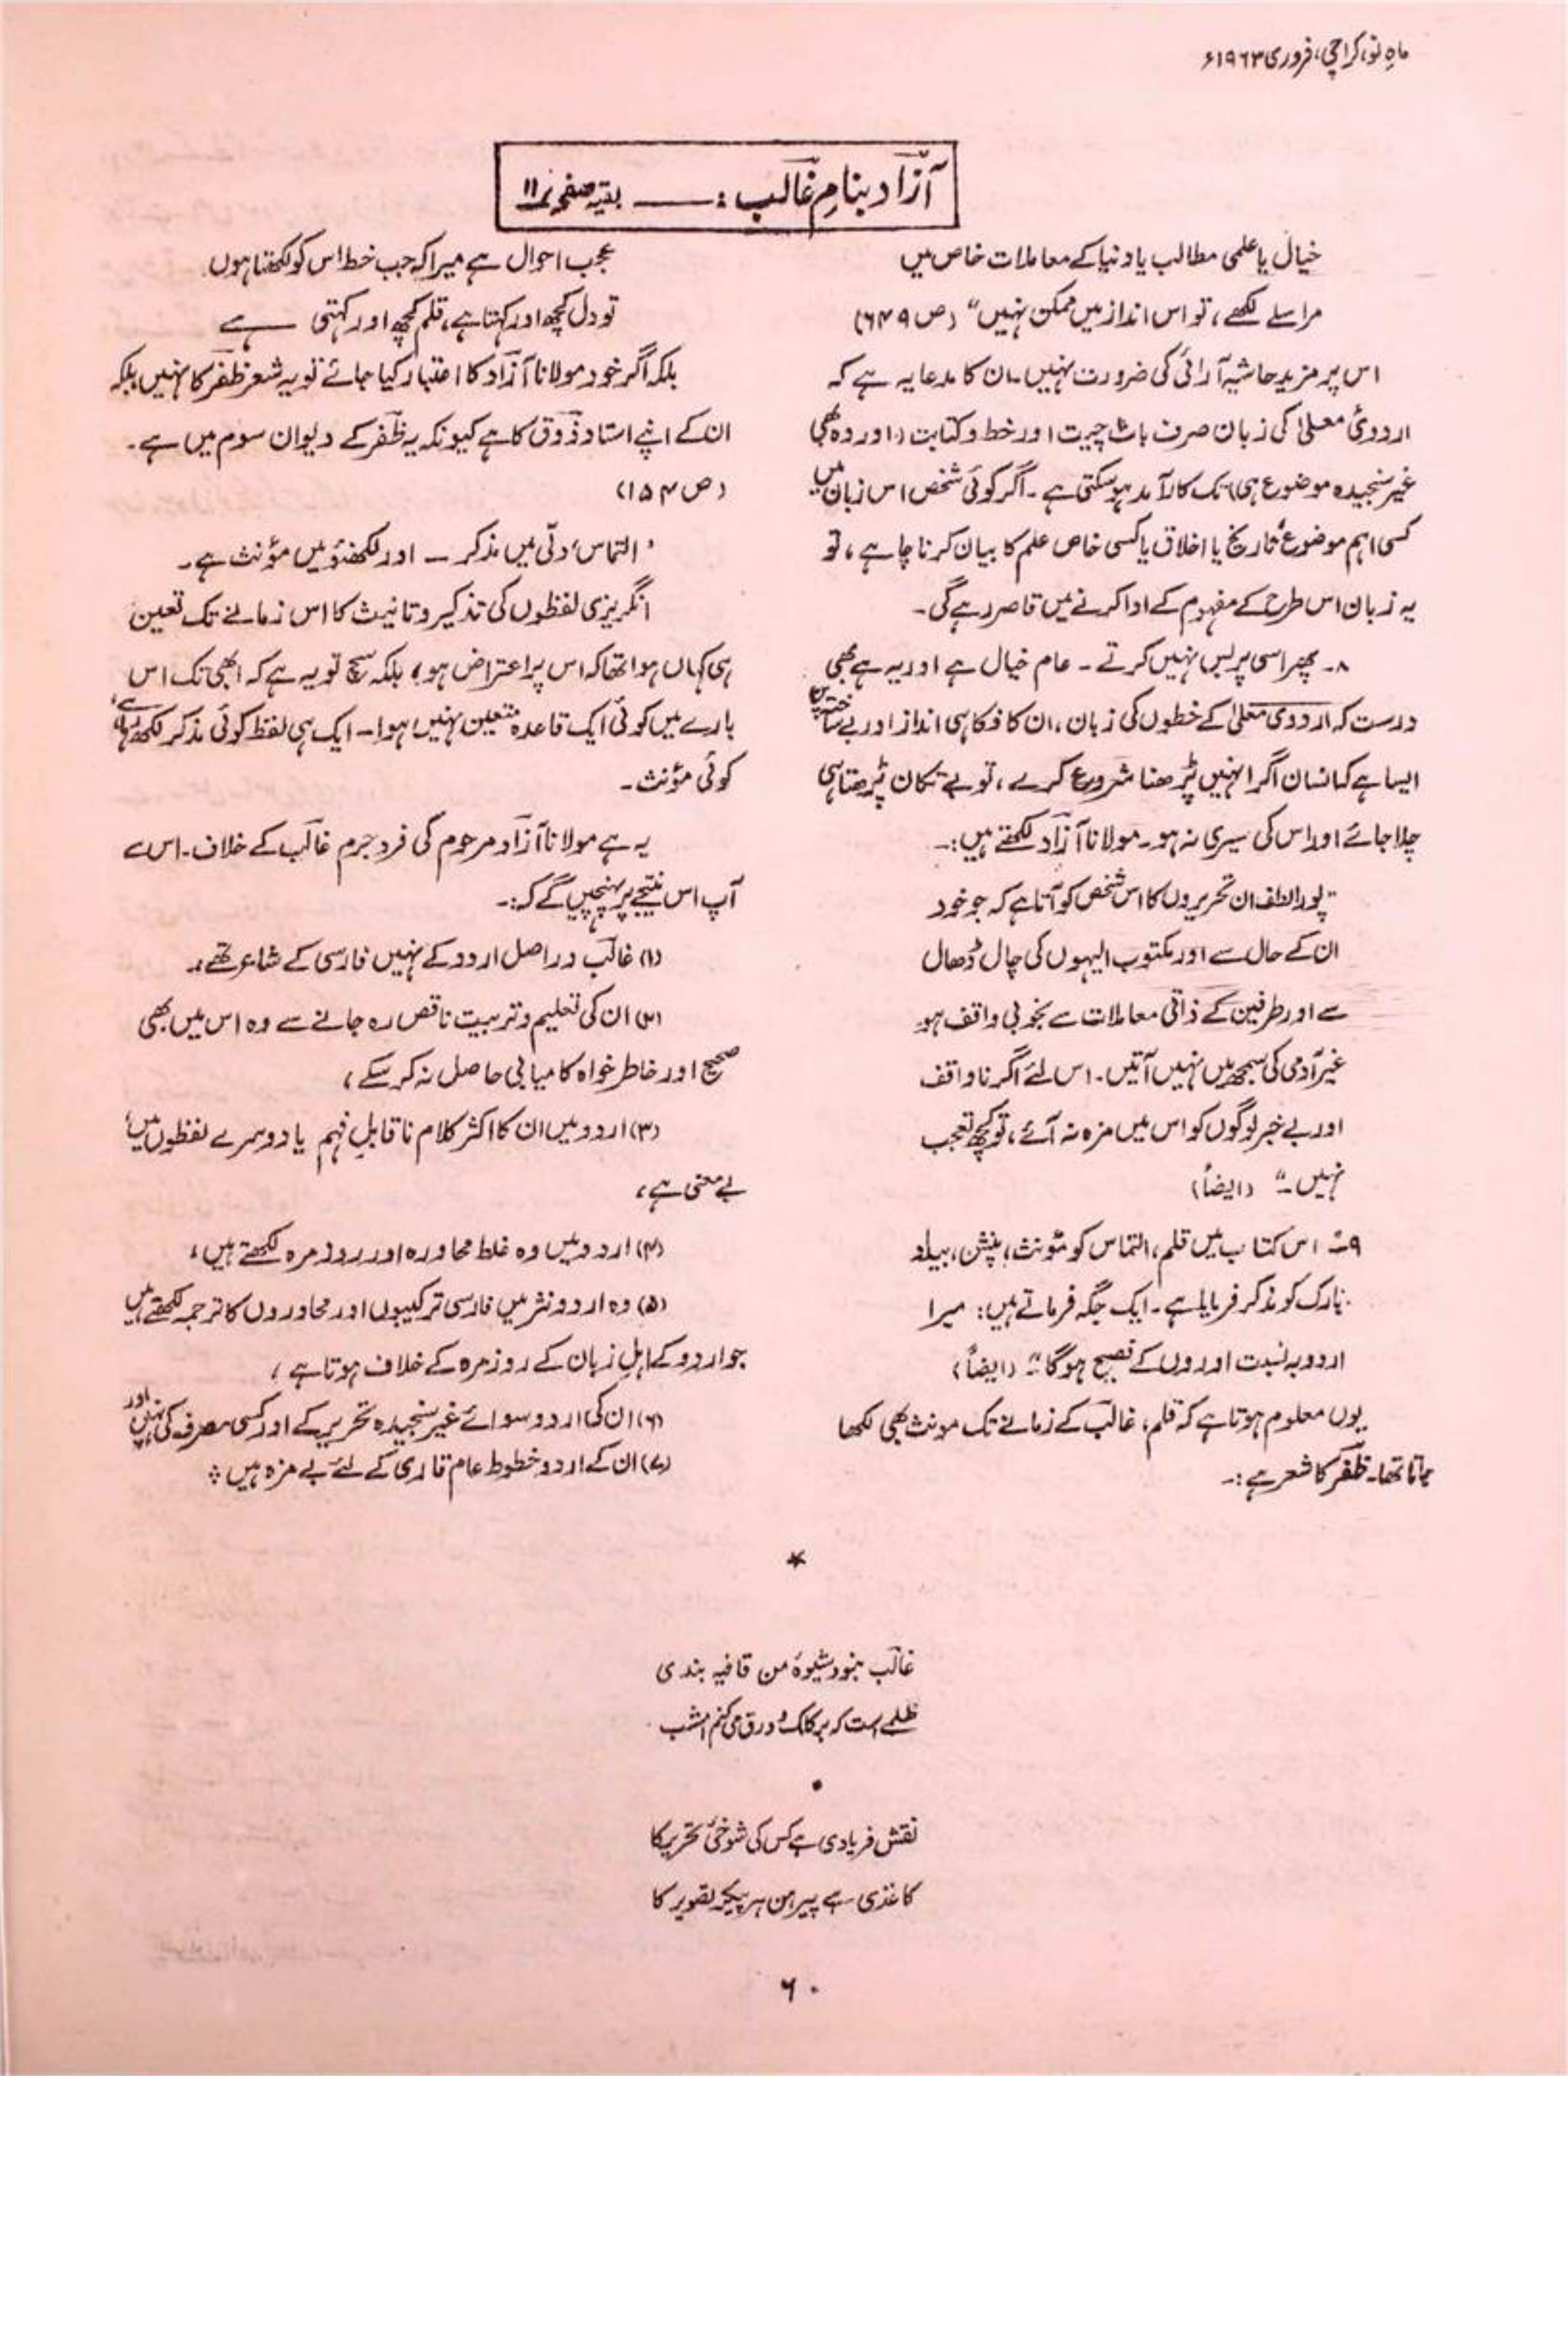 ماہِ نو، کراچی، فروری ۱۹۶۳ء
آزاد بنامِ غالب : ــــــ بقیہ صفحہ نمبر ۱۱
خیال یا علمی مطالب یا دنیا کے معاملات خاص میں
مراسلے لکھے، تو اس انداز میں ممکن نہیں" (ص ۶۴۹)
اس پر مزید حاشیہ آرائی کی ضرورت نہیں۔ ان کا مدعا یہ ہے کہ
اردوئ معلیٰ کی زبان صرف بات چیت اور خط و کتابت (اور وہ بھی
غیر سنجیدہ موضوع ہی) تک کارآمد ہوسکتی ہے۔ اگر کوئی شخص اس زبان میں
کسی اہم موضوع تاریخ یا اخلاق یا کسی خاص علم کا بیان کرنا چاہے، تو
یہ زبان اس طرح کے مفہوم کے ادا کرنے میں قاصر رہے گی۔
۸۔ پھر اسی پر بس نہیں کرتے۔ عام خیال ہے اور یہ ہے بھی
درست کہ اردوی معلیٰ کے خطوں کی زبان، ان کا فکاہی انداز اور بے ساختہ پن
ایسا ہے کہ انسان اگر انہیں پڑھنا شروع کرے، تو بے تکان پڑھتا ہی
چلا جائے اور اس کی سیری نہ ہو۔ مولانا آزاد لکھتے ہیں:۔
"پورا لطف ان تحریروں کا اس شخص کو آتا ہے کہ جو خود
ان کے حال سے اور مکتوب الیہوں کی چال ڈھال
سے اور طرفین کے ذاتی معاملات سے بخوبی واقف ہو
غیر آدمی کی سمجھ میں نہیں آتیں۔ اس لئے اگر ناواقف
اور بے خبر لوگوں کو اس میں مزہ نہ آئے، تو کچھ تعجب
نہیں۔" (ایضاً)
۹۔ اس کتاب میں قلم، التماس کو مؤنث، پنشن، بیلد
بارک کو مذکر فرمایا ہے۔ ایک جگہ فرماتے ہیں: میرا
اردو بہ نسبت اوروں کے فصیح ہوگا۔" (ایضاً)
یوں معلوم ہوتا ہے کہ قلم، غالب کے زمانے تک مونث بھی لکھا
جاتا تھا۔ ظفر کا شعر ہے:۔
عجب احوال ہے میرا کہ جب خط اس کو لکھتا ہوں
تو دل کچھ اور کہتا ہے، قلم کچھ اور کہتی ہے
بلکہ اگر خود مولانا آزاد کا اعتبار کیا جائے تو یہ شعر ظفر کا نہیں بلکہ
ان کے اپنے استاد ذوق کا ہے کیونکہ یہ ظفر کے دیوان سوم میں ہے۔
(ص ۱۵۴)
'التماس' دلّی میں مذکر ــ اور لکھنؤ میں مؤنث ہے۔
انگریزی لفظوں کی تذکیر و تانیث کا اس زمانے تک تعین
ہی کہاں ہوا تھا کہ اس پر اعتراض ہو، بلکہ سچ تو یہ ہے کہ ابھی تک اس
بارے میں کوئی ایک قاعدہ متعین نہیں ہوا۔ ایک ہی لفظ کوئی مذکر لکھ رہا ہے،
کوئی مؤنث۔
یہ ہے مولانا آزاد مرحوم کی فرد جرم غالب کے خلاف۔ اس سے
آپ اس نتیجے پر پہنچیں گے کہ:۔
(۱) غالب دراصل اردو کے نہیں فارسی کے شاعر تھے۔
(۲) ان کی تعلیم و تربیت ناقص رہ جانے سے وہ اس میں بھی
صحیح اور خاطر خواہ کامیابی حاصل نہ کر سکے،
(۳) اردو میں ان کا اکثر کلام ناقابلِ فہم یا دوسرے لفظوں میں'
بے معنی ہے،
(۴) اردو میں وہ غلط محاورہ اور روز مرہ لکھتے ہیں،
(۵) وہ اردو نثر میں فارسی ترکیبوں اور محاوروں کا ترجمہ لکھتے ہیں
جو اردو کے اہلِ زبان کے روزمرہ کے خلاف ہوتا ہے،
(۶) ان کی اردو سوائے غیر سنجیدہ تحریر کے اور کسی مصرف کی نہیں، اور
(۷) ان کے اردو خطوط عام قاری کے لئے بے مزہ ہیں ÷
*
غالب نبود شیوۂ من قافیہ بندی
ظلمے است کہ بر کلک و ورق می کنم امشب
•
نقش فریادی ہے کس کی شوخیٔ تحریر کا
کاغذی ہے پیرہن ہر پیکرِ تصویر کا
۶۰